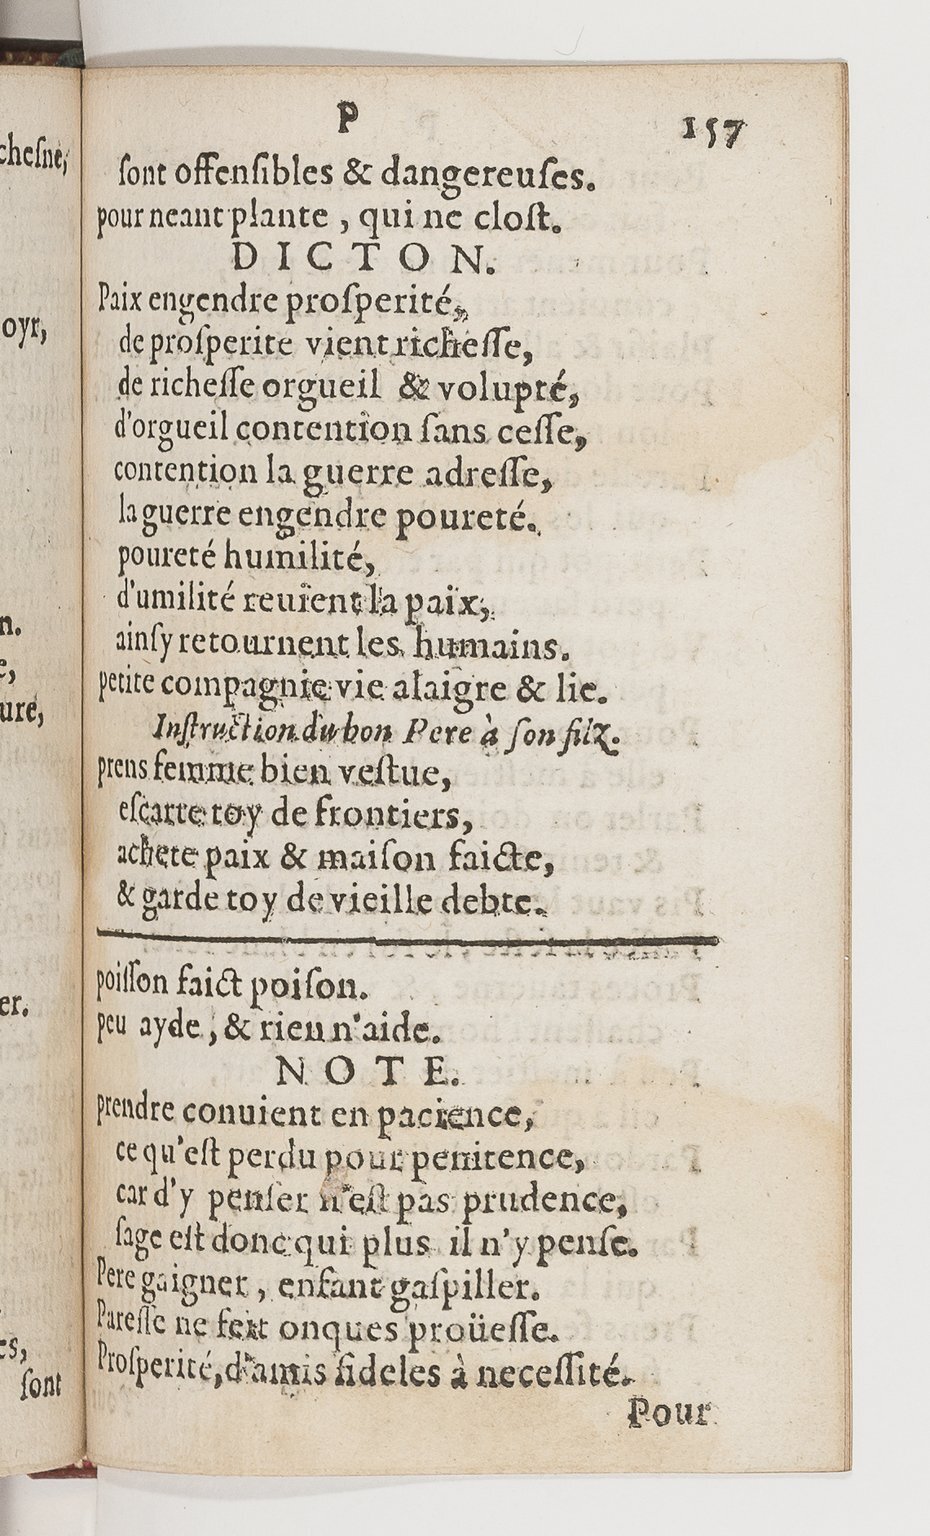 chesne,
oyr,
n.
ure,
er.
es,
sont
P
157
ſont offenſibles & dangereuſes.
pour neant plante , qui ne cloſt.
DICTON.
Paix engendre proſperité,
de proſperite vient richeſſe,
de richeſſe orgueil & volupté,
d'orgueil contention ſans ceſſe,
contention la guerre adreſſe,
la guerre engendre poureté.
poureté humilité,
d'umilité reuient la paix,
ainſy retournent les humains.
petite compagnie vie alaigre & lie.
Inſtruction du bon Pere à ſon filz.
prens femme bien veſtue,
eſcarte toy de frontiers,
achete paix & maiſon faicte,
& garde toy de vieille debte.
poiſſon faict poiſon.
peu ayde , & rien n'aide.
NOTE.
prendre conuient en pacience,
ce qu'eſt perdu pour penitence,
car d'y penſer n'eſt pas prudence,
ſage eſt donc qui plus il n'y penſe.
Pere gaigner , enfant gaſpiller.
Pareſſe ne feit onques proüeſſe.
Proſperité, d'amis fideles à neceſſité.
Pour